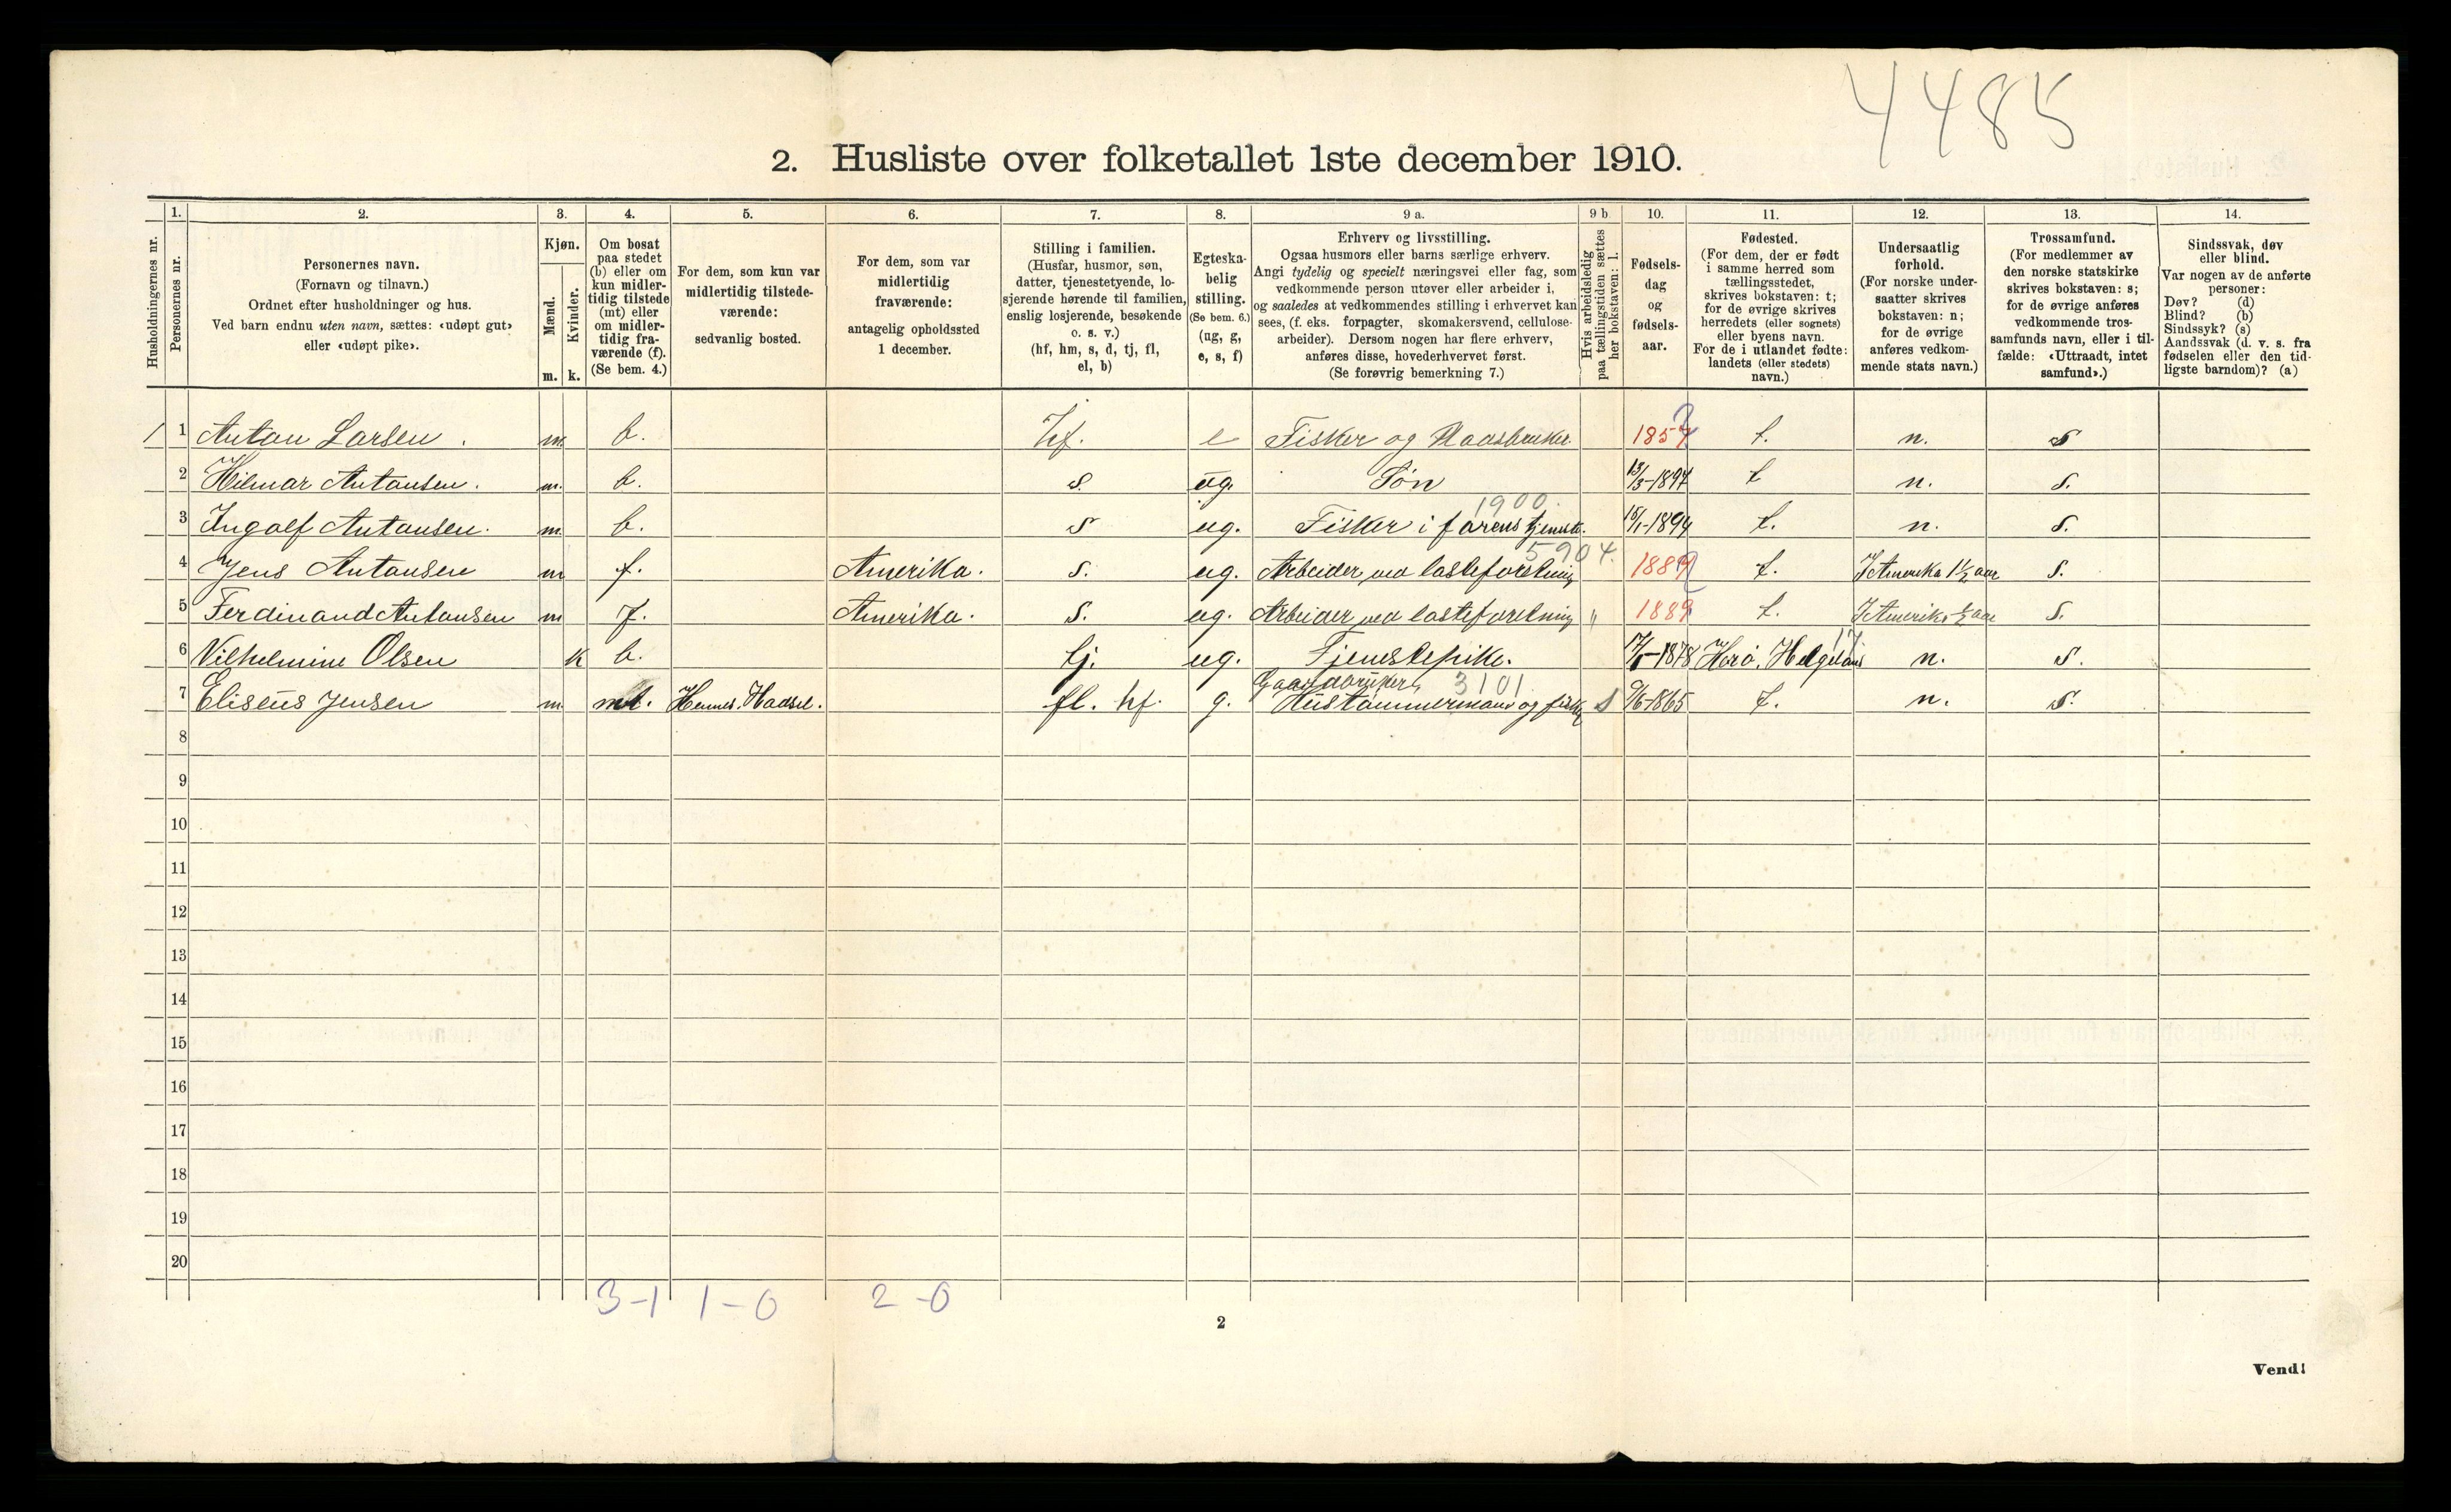 4485
2. Husliste over folketallet 1ste december 1910.
Husholdningernes nr.
1. Personernes nr.
2. Personernes navn.
(Fornavn og tilnavn.)
Ordnet efter husholdninger og hus.
Ved barn endnu uten navn, sættes: «udøpt gut»
eller «udøpt pike».
3. Kjøn.
Mænd. m.
Kvinder. k.
4. Om bosat
paa stedet
(b) eller om
kun midler-
tidig tilstede
(mt) eller
om midler-
tidig fra-
værende (f).
(Se bem. 4.)
5. For dem, som kun var
midlertidig tilstede-
værende:
sedvanlig bosted.
6. For dem, som var
midlertidig
fraværende:
antagelig opholdssted
1 december.
7. Stilling i familien.
(Husfar, husmor, søn,
datter, tjenestetyende, lo-
sjerende hørende til familien,
enslig losjerende, besøkende
o. s. v.)
(hf, hm, s, d, tj, fl,
el, b)
8. Egteska-
belig
stilling.
(Se bem. 6.)
(ug, g,
e, s, f)
9 a. Erhverv og livsstilling.
Ogsaa husmors eller barns særlige erhverv.
Angi tydelig og specielt næringsvei eller fag, som
vedkommende person utøver eller arbeider i,
og saaledes at vedkommendes stilling i erhvervet kan
sees, (f. eks. forpagter, skomakersvend, cellulose-
arbeider). Dersom nogen har flere erhverv,
anføres disse, hovederhvervet først.
(Se forøvrig bemerkning 7.)
9 b. Hvis arbeidsledig
paa tællingstiden sættes
her bokstaven: l.
10. Fødsels-
dag
og
fødsels-
aar.
11. Fødested.
(For dem, der er født
i samme herred som
tællingsstedet,
skrives bokstaven: t;
for de øvrige skrives
herredets (eller sognets)
eller byens navn.
For de i utlandet fødte:
landets (eller stedets)
navn.)
12. Undersaatlig
forhold.
(For norske under-
saatter skrives
bokstaven: n;
for de øvrige
anføres vedkom-
mende stats navn.)
13. Trossamfund.
(For medlemmer av
den norske statskirke
skrives bokstaven: s;
for de øvrige anføres
vedkommende tros-
samfunds navn, eller i til-
fælde: «Uttraadt, intet
samfund».)
14. Sindssvak, døv
eller blind.
Var nogen av de anførte
personer:
Døv? (d)
Blind? (b)
Sindssyk? (s)
Aandssvak (d. v. s. fra
fødselen eller den tid-
ligste barndom)? (a)
1 1 Anton Larsen. m b. hf. e Fisker og 1857 t. n. s
2 Hilmar Antonsen. m. b. s. ug. Søn 13/3-1897 t n. s.
1900.
3 Ingolf Antonsen. m. b. s ug. Fisker i farens tjeneste. 15/1-1894 t. n. s.
5904.
4 Jens Antonsen m f. Amerika. s. ug. Arbeider ved t. I Amerika 1½ aar s.
5 Ferdinand Antonsen m f. Amerika. s. ug. Arbeider ved " 1889 t. I Amerika ½ aar s.
17
6 Vilhelmine Olsen k b. tj. ug. Tjenestepike. 1878 Herø, Helgeland n. s.
Gaardbruker, 3101
7 Eliseus Jensen m mt. Hennes. Hadsel. fl. hf. g. Hustømmermand og fisker 1865 t. n. s.
8
9
10
11
12
13
14
15
16
17
18
19
20
3-1 1-0 2-0
2
Vend!